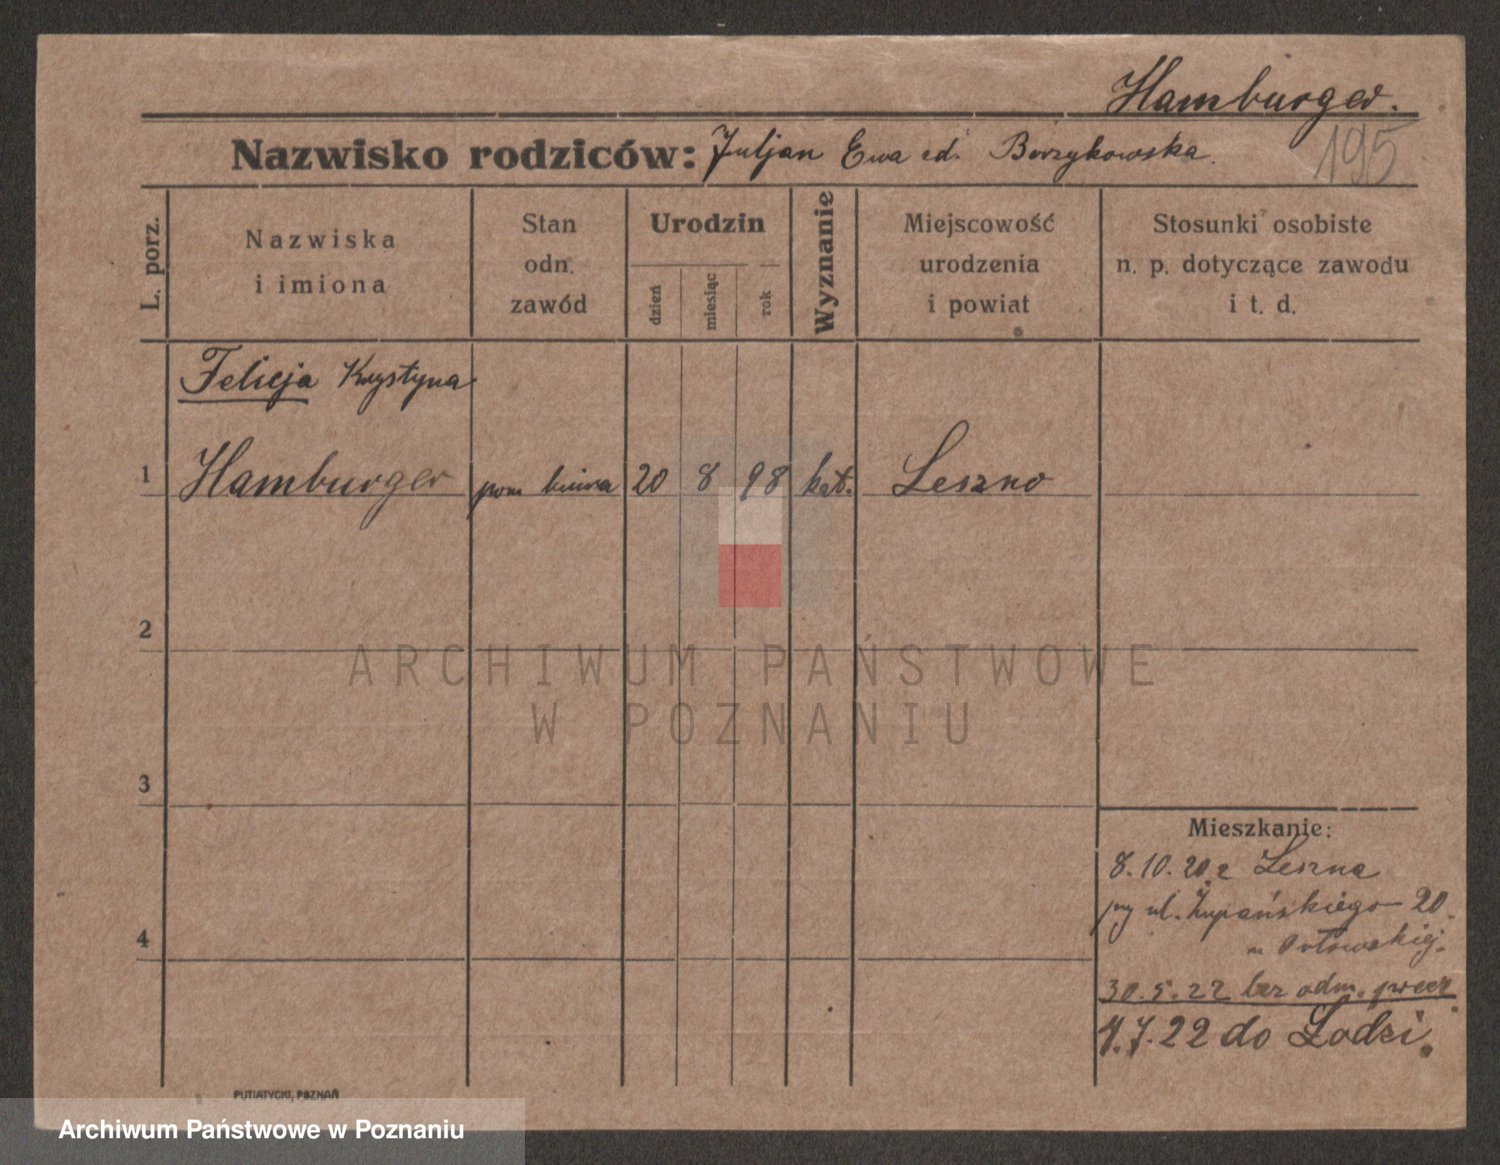 Hamburger.
195
Nazwisko rodziców: Juljan Ewa Borzykowska.
L. porz.
Nazwiska
i imiona
Stan
odn.
zawód
Urodzin
dzień
miesiąc
rok
Wyznanie
Miejscowość
urodzenia
i powiat
Stosunki osobiste
n. p. dotyczące zawodu
i t. d.
Felicja Krystyna
1 Hamburger pom biura 20 8 98 kat. Leszno
2
ARCHIWUM PAŃSTWOWE
W POZNANIU
3
Mieszkanie:
8.10.20 z Leszna
ul. Żupańskiego 20
4
30.5.22 bez odm.
do Łodzi.
PUTIATYCKI, POZNAŃ
Archiwum Państwowe w Poznaniu